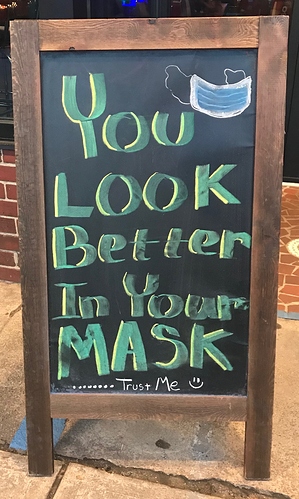 You
LOOK
Better
In Your
MASK
........ Trust Me